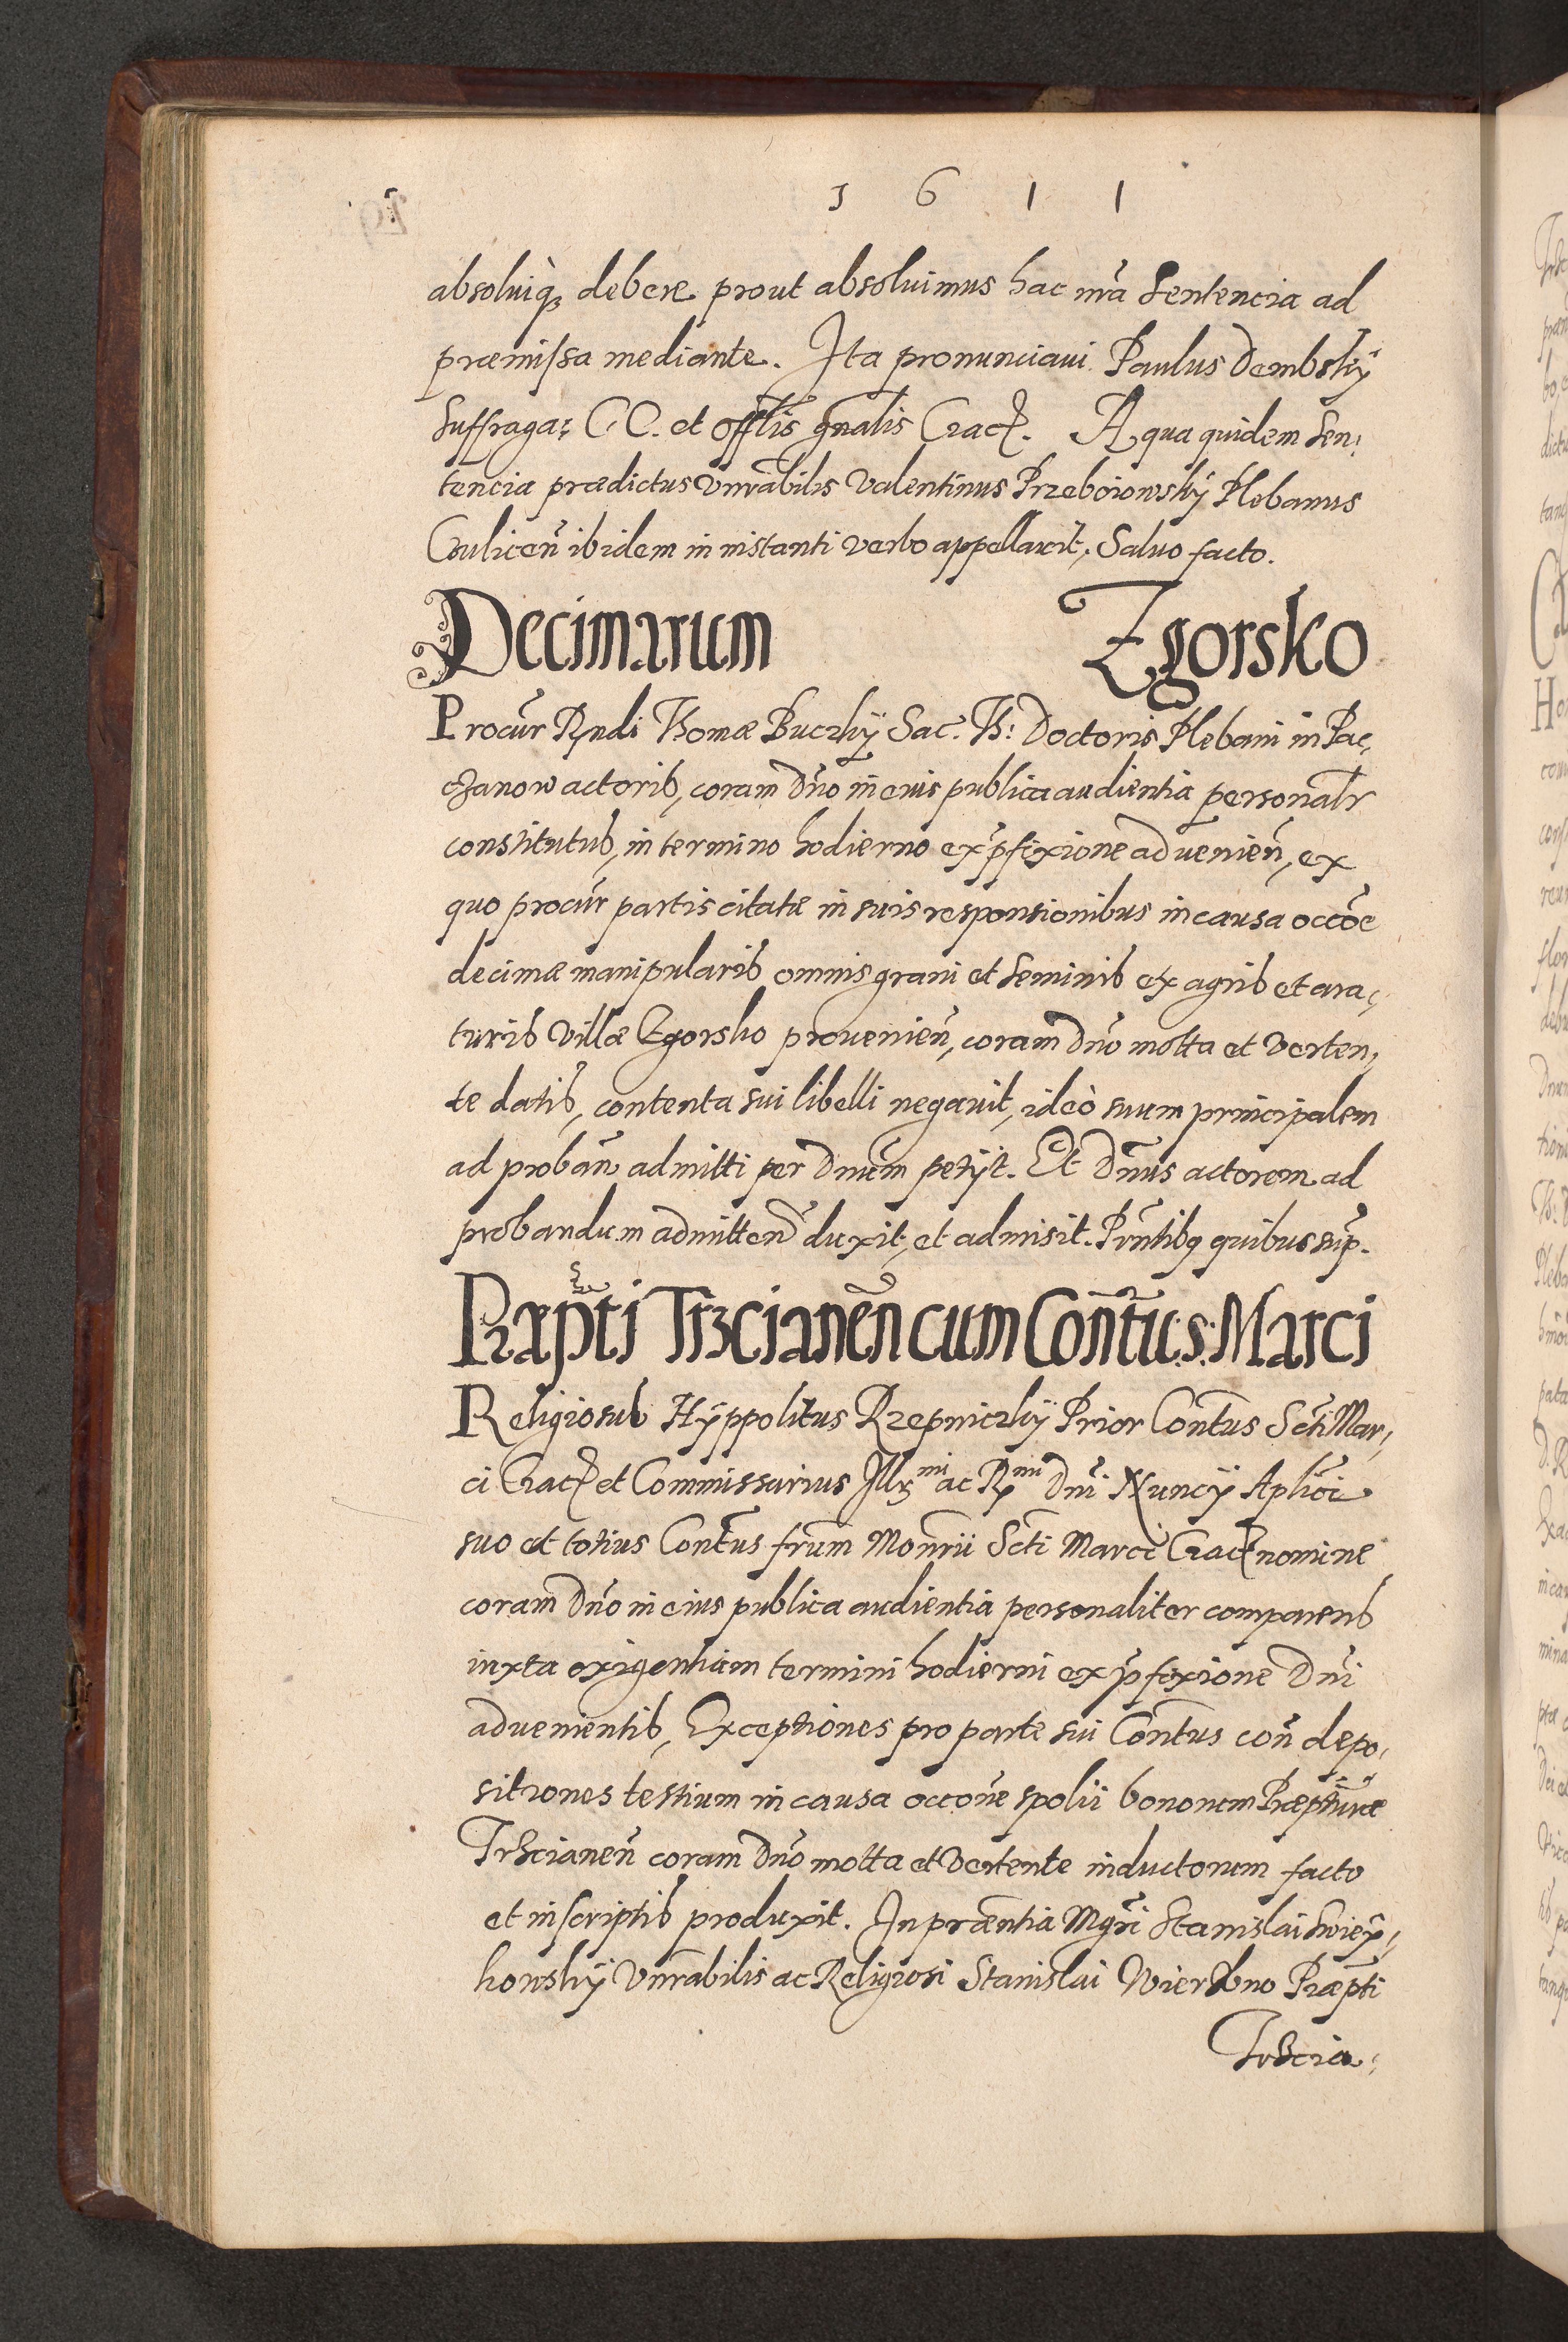 1 6 1 1
absoluiq₃ debere prout absoluimus hac nr̃a Sentencia ad
præmissa mediante. Ita pronunciaui Paulus Dembskÿ
Suffraga: CC. et offlis gñalis Crac̃. A qua quidem Sen:
tencia prædictus Vnr̃abilis Valentinus Przeborowskÿ Plebanus
Culiceñ ibidem in instanti verbo appellavit, Saluo facto.
Decimarum Zgorsko
Procur̃ Rndi Thomæ Buczkÿ Sac. Th: Doctoris Plebani in Pac,
czanow actoris, coram dño in eius publica audientia personalr̃
constitutus, in termino hodierno ex p̃fixione aduenieñ, ex
quo procur̃ partis citatæ in suis responsionibus in causa occõe
decimæ manipularis omnis grani et Seminis ex agris et ara,
turis Villæ Zgorsko proueniẽn, coram dño motta et verten,
te datis, contenta sui libelli negauit, ideò suum principalem
ad probañ admitti per Dnum̃ petÿt. Et Dñus actorem ad
probandum admitteñ duxit, et admisit. Pr̃ntibq quibus sup̃.
Præp̃ti Trzcianeñ cum Conñtu: s: Marci
Religiosus Hÿppolitus Rzepniczkÿ Prior Conñtus Scti Mar,
ci Crac̃ et Commissarius Illr̃mi ac Rmi Dñi Nuncÿ Aplici
suo et totius Conñtus frum̃ Monrii Scti Marci Crac̃ nomine
coram dño in eius publica audientia personaliter comparens
iuxta exigentiam termini hodierni ex p̃fixione Dñi
aduenientis, Exceptiones pro parte sui Conñtus con̄ depo,
sitiones testium in causa occõne spolii bonorum Præp̃turæ
Trzcianeñ coram dño motta et vertente inductorum facto
et in scriptis produxit. In præntia Mgr̃i Stanislai Swiey,
kowskÿ Vnr̃abilis ac Religiosi Stanislai Wierzbno Præp̃ti
Trzcia,